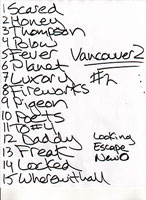 1 Scared
2 Honey
3 Thompson
4 Polow
5 Fever
6 Planet
7 Luxory
8 Fireworks
9 Pigeon
10 Poets
11 TO#4
12 Daddy
13 Freak
14 Locked
15 Wherewithall
Vancouver2
#2
Looking
Escape
NewO